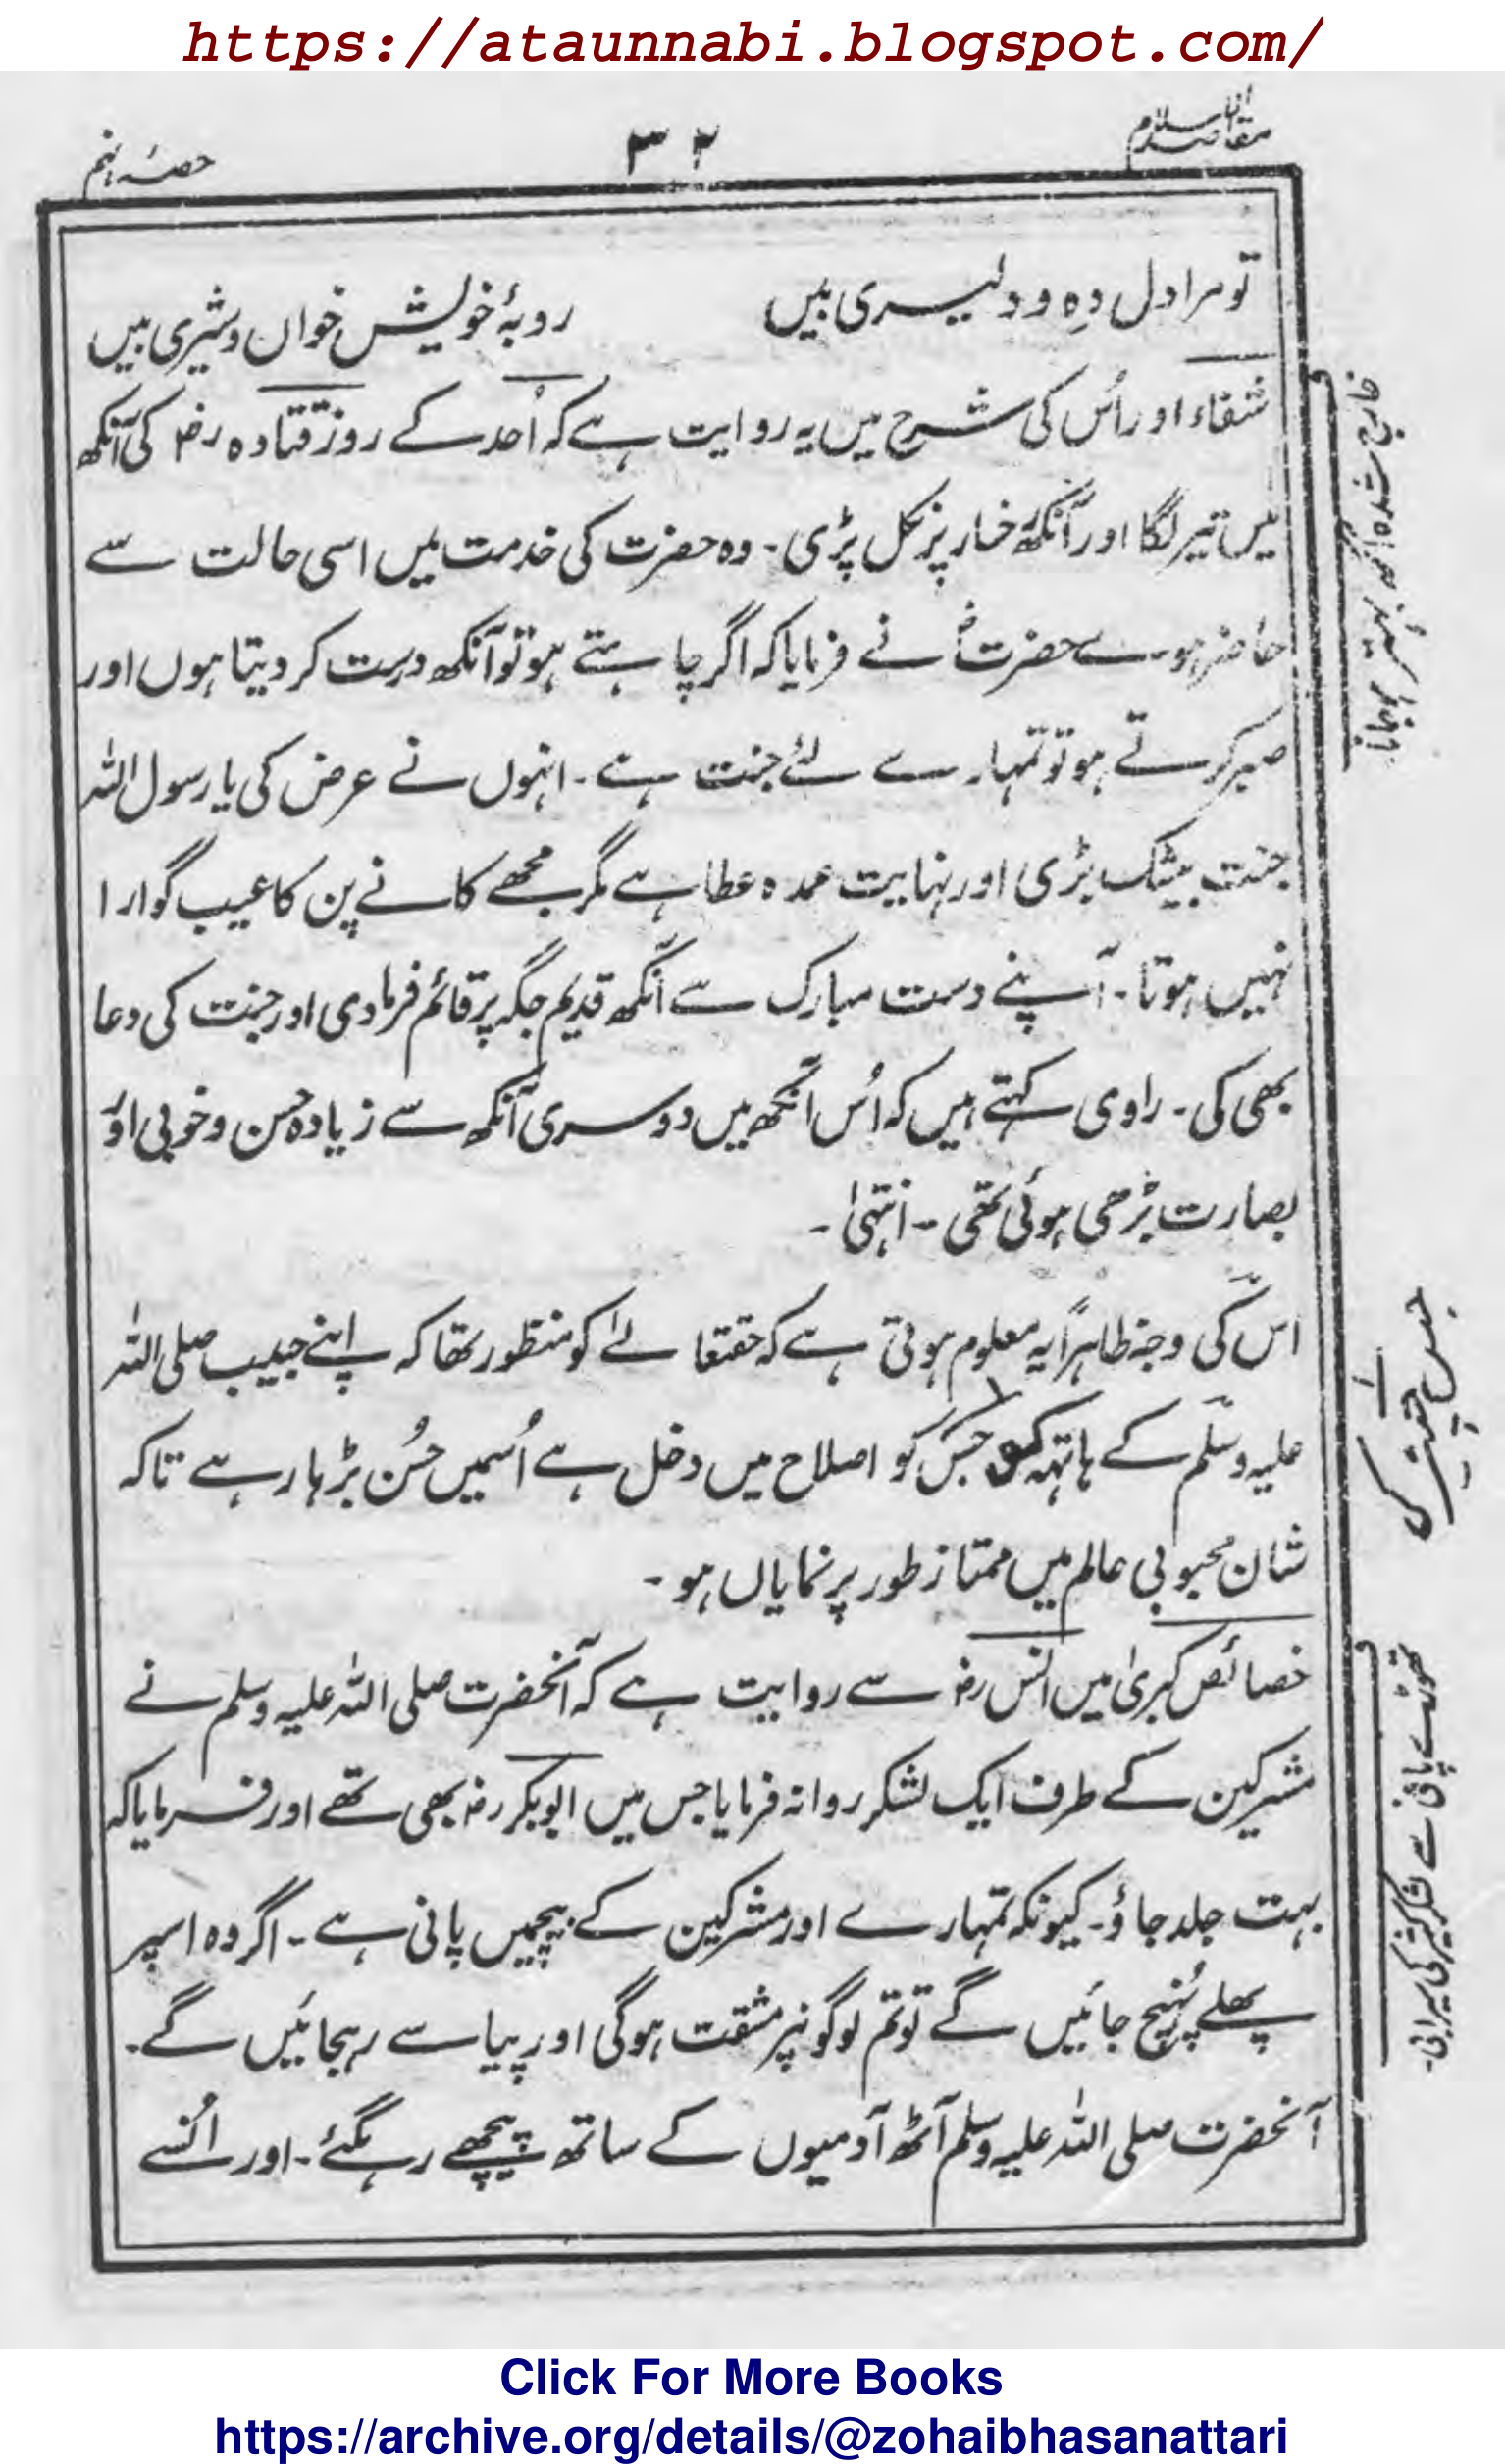 https://ataunnabi.blogspot.com/
مقاصد الاسلام
۳۲
حصہ نہم
تو مرا دل دہ و دلیری بیں
روبۂ خویش خواں و شیری بیں
شفاء اور اُس کی شرح میں یہ روایت ہے کہ اُحد کے روز قتادہ رضؓ کی آنکھ
میں تیر لگا اور آنکھ رخسار پر نکل پڑی۔ وہ حضرت کی خدمت میں اسی حالت سے
حاضر ہوے حضرتؐ نے فرمایا کہ اگر چاہتے ہو تو آنکھ درست کر دیتا ہوں اور
صبر کرتے ہو تو تمہارے لئے جنت ہے۔ انہوں نے عرض کی یا رسول اللہ
جنت بیشک بڑی اور نہایت عمدہ عطا ہے مگر مجھے کانے پن کا عیب گوارا
نہیں ہوتا۔ آپنے دست مبارک سے آنکھ قدیم جگہ پر قائم فرما دی اور جنت کی دعا
بھی کی۔ راوی کہتے ہیں کہ اُس آنکھ میں دوسری آنکھ سے زیادہ حسن و خوبی اور
بصارت بڑھی ہوئی تھی ۔ انتہیٰ ۔
اس کی وجہ ظاہراً یہ معلوم ہوتی ہے کہ حقتعالےٰ کو منظور تھا کہ اپنے حبیب صلی اللہ
علیہ وسلم کے ہاتھہ کو جس کو اصلاح میں دخل ہے اُسمیں حُسن بڑہا رہے تاکہ
شان محبوبی عالم میں ممتاز طور پر نمایاں ہو ۔
خصائص کبریٰ میں انس رضؓ سے روایت ہے کہ آنحضرت صلی اللہ علیہ وسلم نے
مشرکین کے طرف ایک لشکر روانہ فرمایا جس میں ابوبکر رضؓ بھی تھے اور فرمایا کہ
بہت جلد جاؤ۔ کیونکہ تمہارے اور مشرکین کے بیچمیں پانی ہے ۔ اگر وہ اسپر
پھلے پُہنچ جائیں گے تو تم لوگونپر مشقت ہوگی اور پیاسے رہجائیں گے۔
آنحضرت صلی اللہ علیہ وسلم آٹھ آدمیوں کے ساتھ پیچھے رہگئے ۔ اور اُنسے
خارج شدہ آنکھ بہتر ہو جانا
تھوڑے پانی سے لشکر کثیر کی سیرابی۔
Click For More Books
https://archive.org/details/@zohaibhasanattari